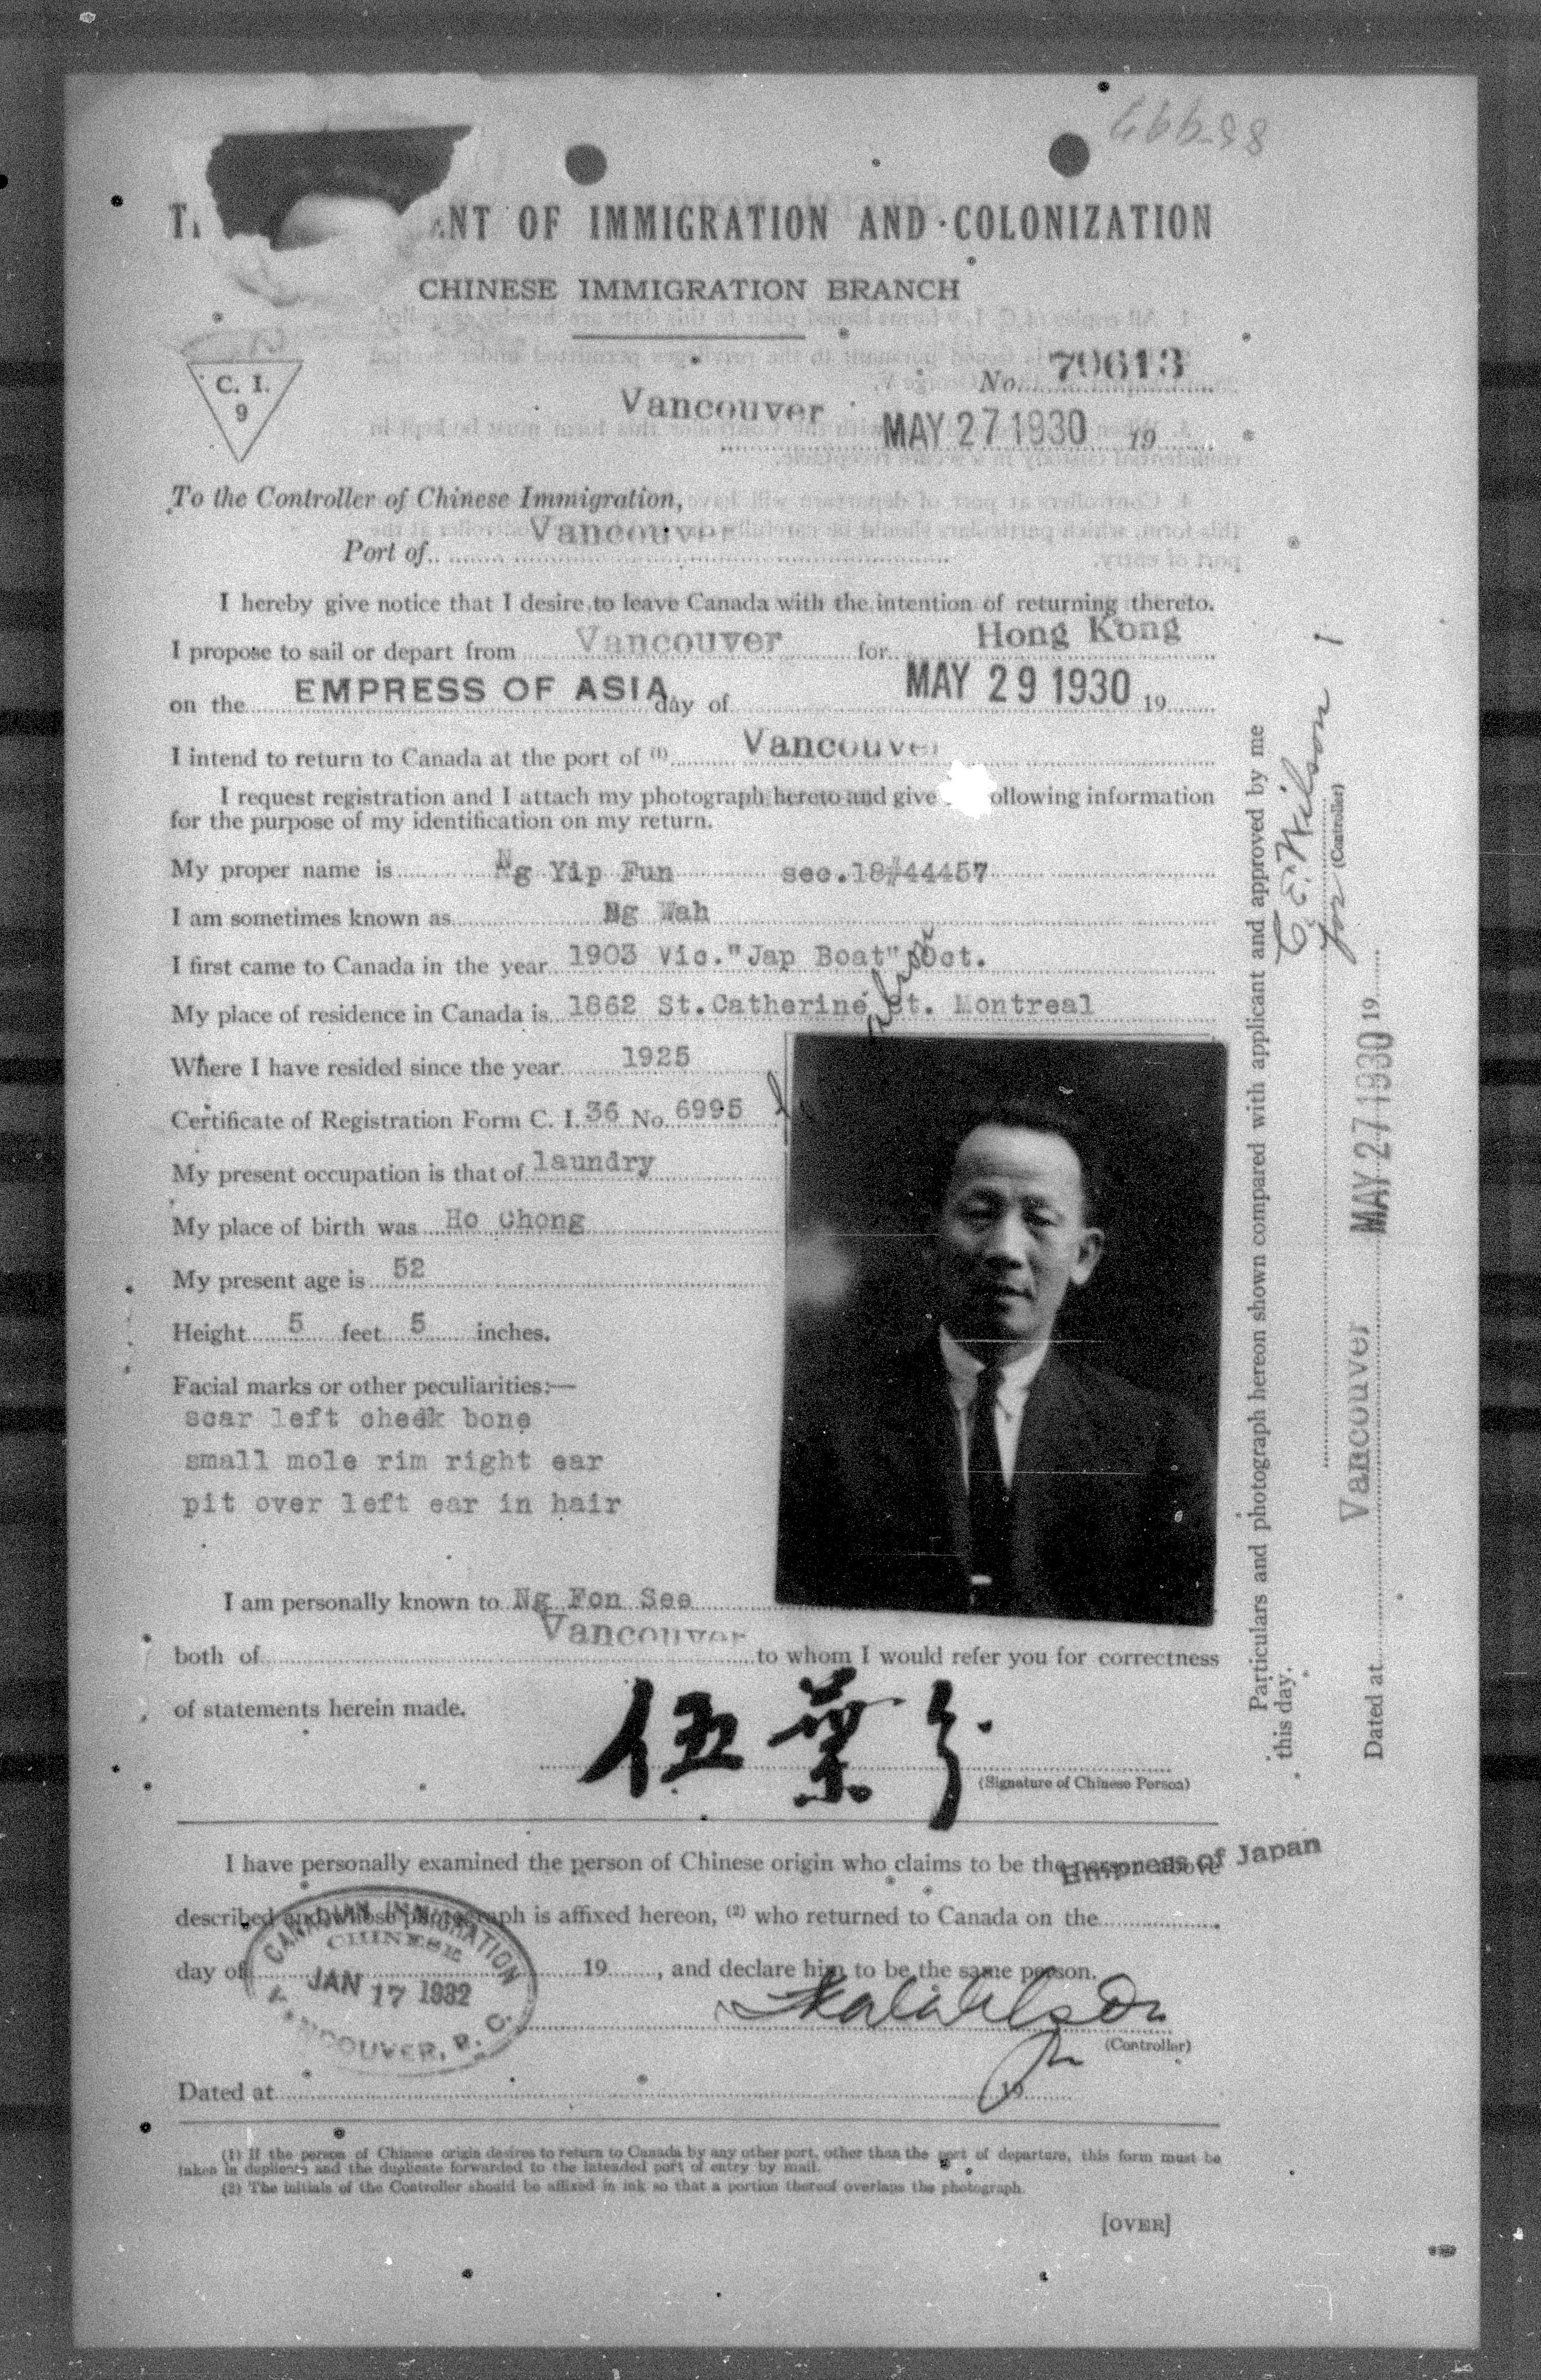 85997
T ENT OF IMMIGRATION AND COLONIZATION
CHINESE IMMIGRATION BRANCH
C. I.
9
No. 79613
Vancouver MAY 27 1930 19
To the Controller of Chinese Immigration,
Port of Vancouver
I hereby give notice that I desire to leave Canada with the intention of returning thereto.
I propose to sail or depart from Vancouver for Hong Kong
on the EMPRESS OF ASIA day of MAY 29 1930 19
I intend to return to Canada at the port of (1) Vancouver
I request registration and I attach my photograph hereto and give ollowing information
for the purpose of my identification on my return.
My proper name is Ng Yip Fun sec.18#44457
I am sometimes known as Ng Wah
I first came to Canada in the year 1903 Vic. "Jap Boat" Oct.
My place of residence in Canada is 1862 St.Catherine St. Montreal
Where I have resided since the year 1925
Certificate of Registration Form C. I. 36 No. 6995
My present occupation is that of laundry
My place of birth was Ho Chong
My present age is 52
Height 5 feet 5 inches.
Facial marks or other peculiarities:—
scar left cheek bone
small mole rim right ear
pit over left ear in hair
I am personally known to Ng Fon See
both of Vancouver to whom I would refer you for correctness
of statements herein made.
伍葉
(Signature of Chinese Person)
I have personally examined the person of Chinese origin who claims to be the person above
Empress of Japan
described and whose photograph is affixed hereon, (2) who returned to Canada on the
day of 19 , and declare him to be the same person.
CANADIAN IMMIGRATION
CHINESE
JAN 17 1932
VANCOUVER, B. C.
(Controller)
Dated at 19
(1) If the person of Chinese origin desires to return to Canada by any other port, other than the port of departure, this form must be
taken in duplicate and the duplicate forwarded to the intended port of entry by mail.
(2) The initials of the Controller should be affixed in ink so that a portion thereof overlaps the photograph.
[OVER]
Particulars and photograph hereon shown compared with applicant and approved by me
this day.
C. E. Wilson
for (Controller)
Dated at Vancouver MAY 27 1930 19